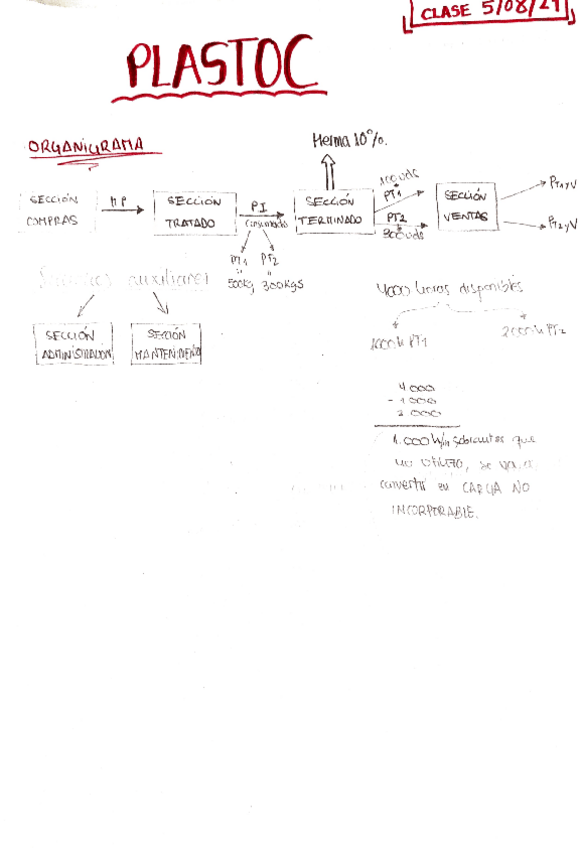 CLASE 5/08/21
PLASTOC
ORGANIGRAMA
Merma 10%.
SECCIÓN COMPRAS
MP
SECCIÓN TRATADO
PI
consumido
SECCIÓN TERMINADO
100 uds
PT1
PT2
300 uds
SECCIÓN VENTAS
PT1 y V
PT2 y V
PT1 PT2
500kg 300kgs
auxiliares
SECCIÓN ADMINISTRACIÓN
SECCIÓN MANTENIMIENTO
4000 horas disponibles
1000 h PT1
2000 h PT2
4.000
- 1.000
2.000
1.000 h/m sobrantes que
no utilizo, se va a
convertir en CARGA NO
INCORPORABLE.